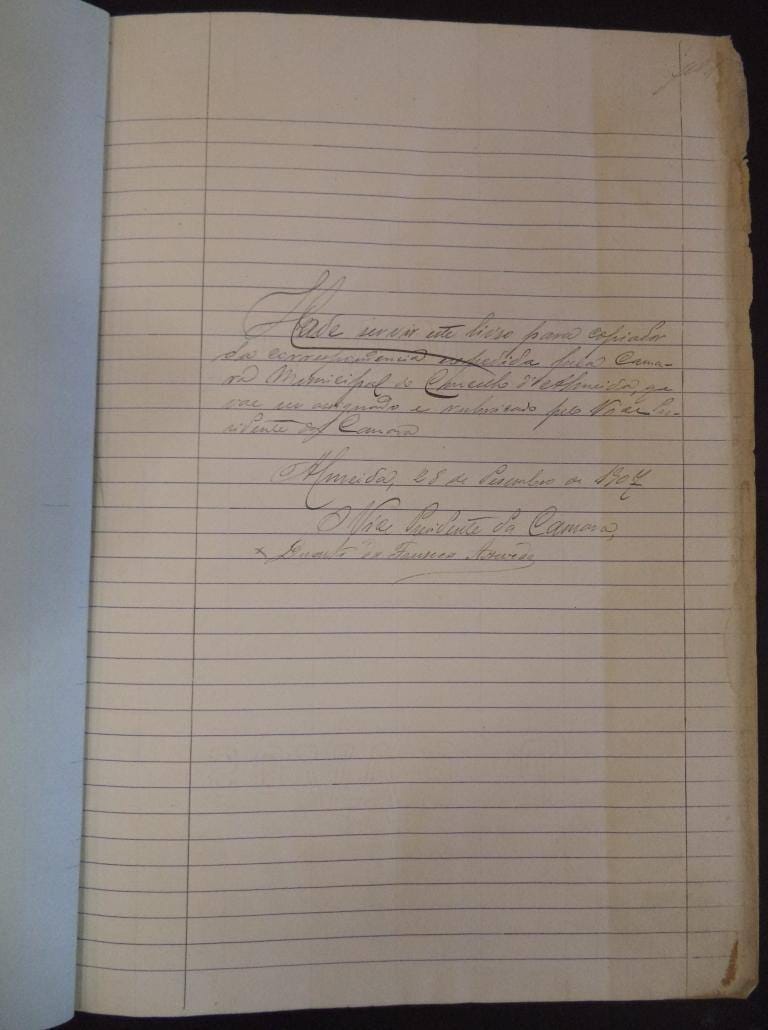 Hade servir este livro para copiador
da correspondencia expedida pela Cama-
ra Municipal do Concelho d'Almeida, q
vae assignado e rubricado pelo Vice Pre-
sidente da Camara
Almeida, 28 de Dezembro de 1907
Vice Presidente da Camara,
Duarte da Fonseca